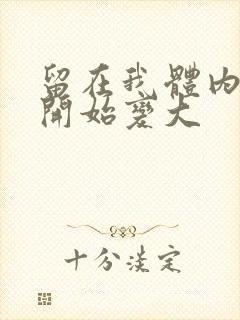 留在我體內
開始變大
十分淡定